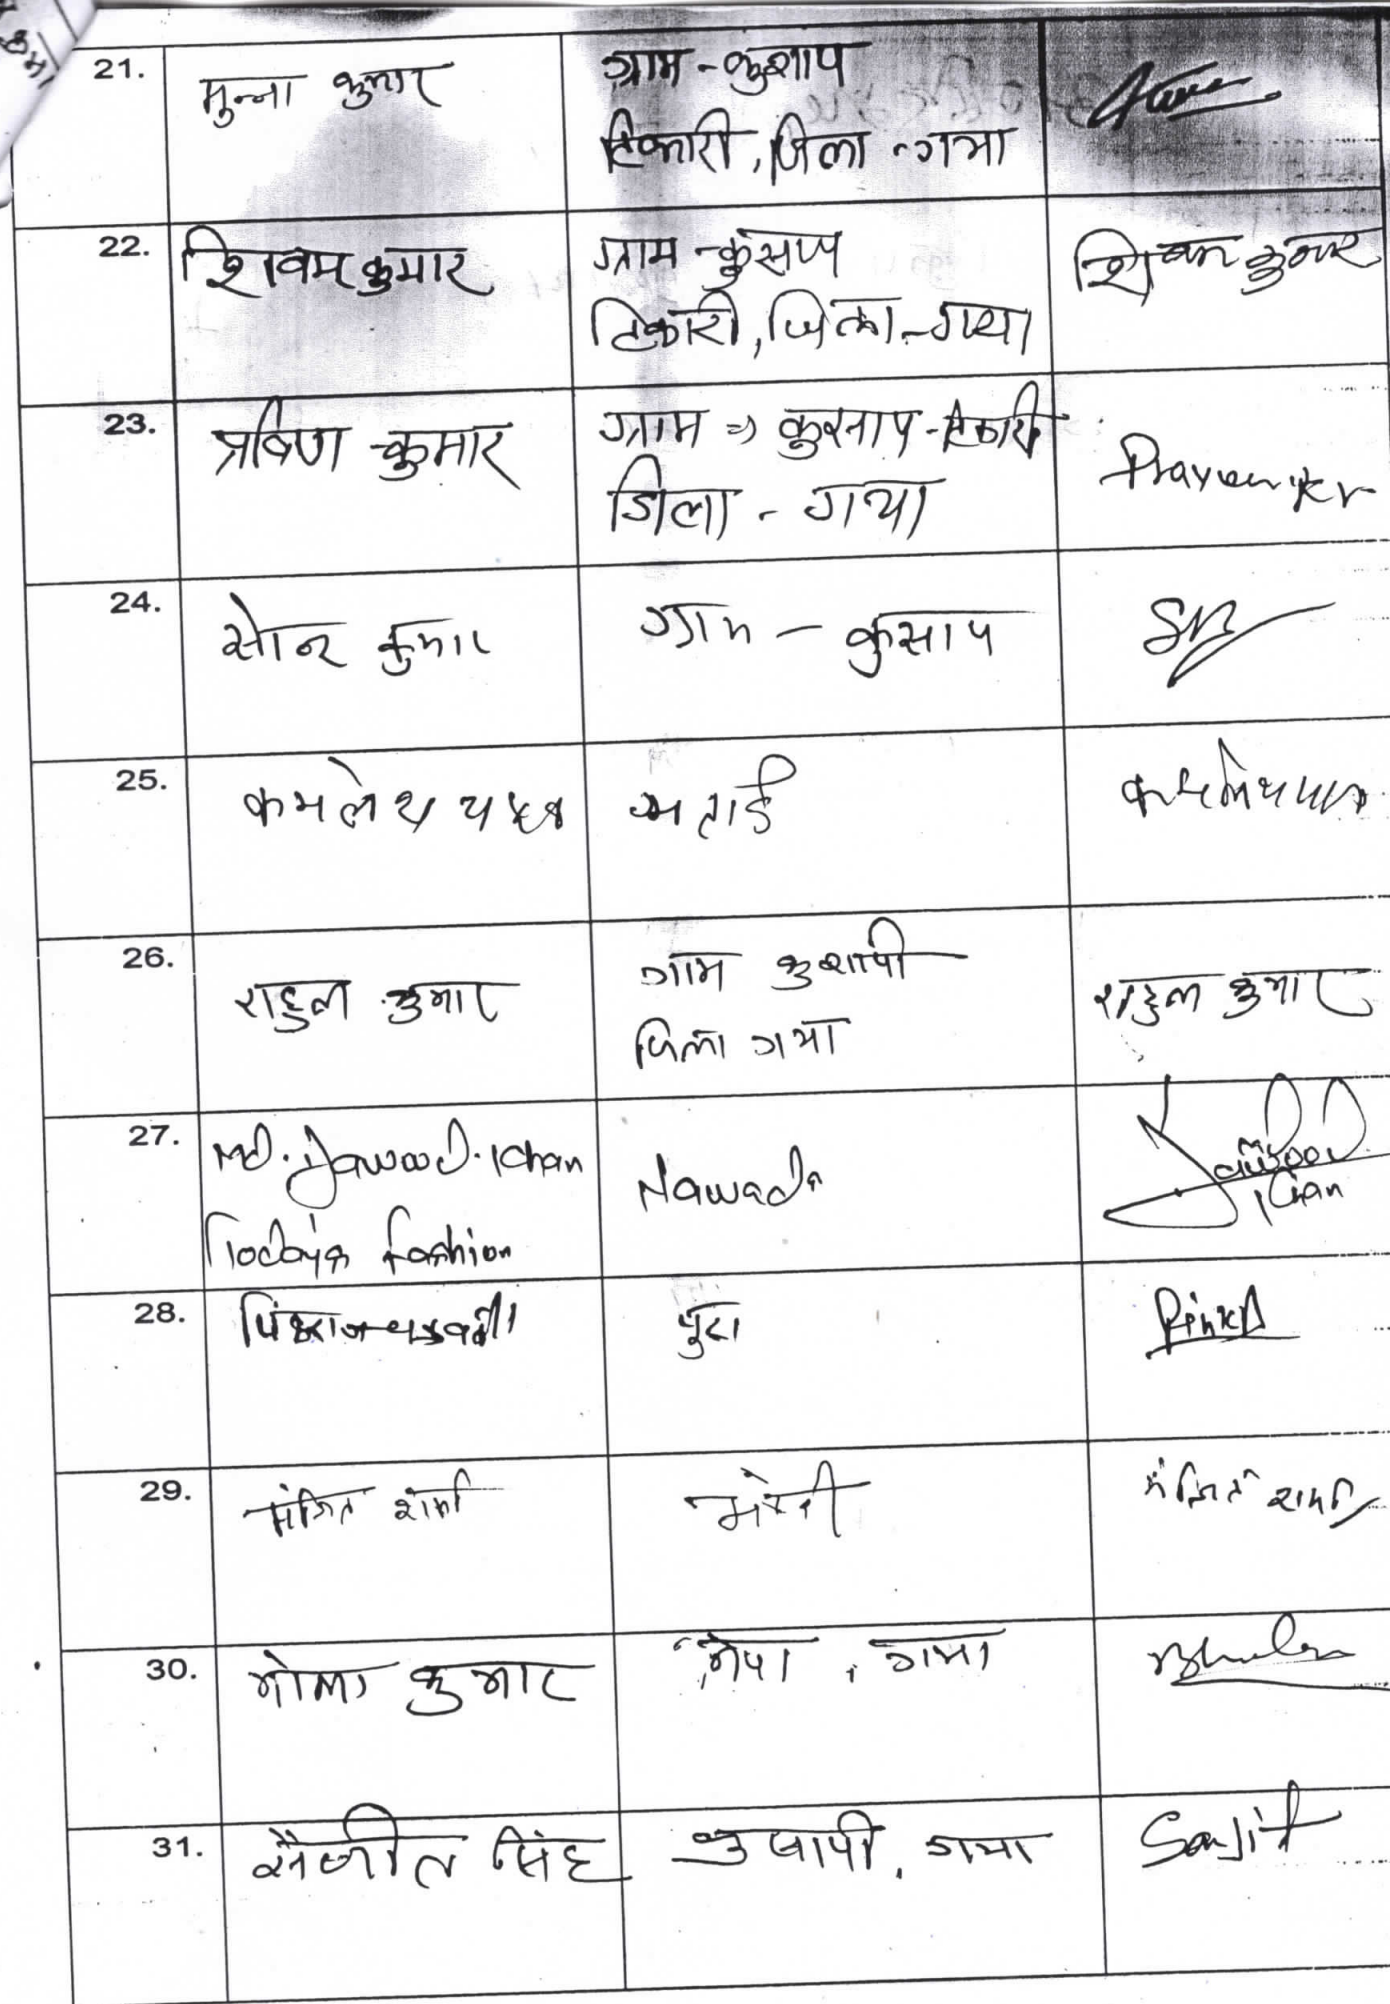 21. मुन्ना कुमार
ग्राम - कुशाप
टिकारी, जिला - गया
22. शिवम कुमार
ग्राम - कुसाप
टिकारी, जिला - गया
शिवम कुमार
23. प्रविण कुमार
ग्राम → कुसाप - टिकारी
जिला - गया
Praveen Kr
24. सोनू कुमार
ग्राम - कुसाप
25. कमलेश
26. राहुल कुमार
ग्राम कुशापी
जिला गया
राहुल कुमार
27. Md. Jawood. Khan
Today's fashion
Nawada
Jawood
Khan
28.
पुरा
29. मंजित शर्मा
मंजित शर्मा
30. भोला कुमार
गया
31. संजीत सिंह
कुशापी, गया
Sanjit